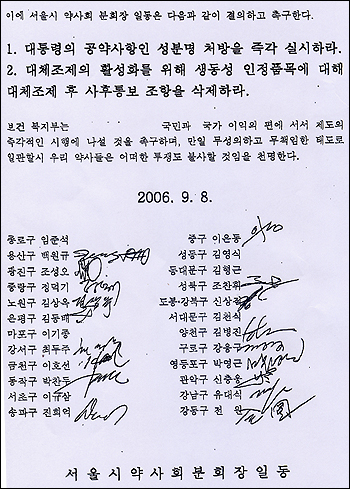 이에 서울시 약사회 분회장 일동은 다음과 같이 결의하고 촉구한다.
1. 대통령의 공약사항인 성분명 처방을 즉각 실시하라.
2. 대체조제의 활성화를 위해 생동성 인정품목에 대해
대체조제 후 사후통보 조항을 삭제하라.
보건 복지부는 국민과 국가 이익의 편에 서서 제도의
즉각적인 시행에 나설 것을 촉구하며, 만일 무성의하고 무책임한 태도로
일관할시 우리 약사들은 어떠한 투쟁도 불사할 것임을 천명한다.
2006. 9. 8.
종로구 임준석
중구 이은동
용산구 백원규
성동구 김영식
광진구 조성오
동대문구 김형근
중랑구 정덕기
성북구 조찬휘
노원구 김상옥
도봉·강북구 신상직
은평구 김동배
서대문구 김천식
마포구 이기종
양천구 김병진
강서구 최두주
구로구 강응구
금천구 이호선
영등포구 박영근
동작구 박찬두
관악구 신충웅
서초구 이규삼
강남구 유대식
송파구 진희억
강동구 전 원
서울시약사회분회장일동